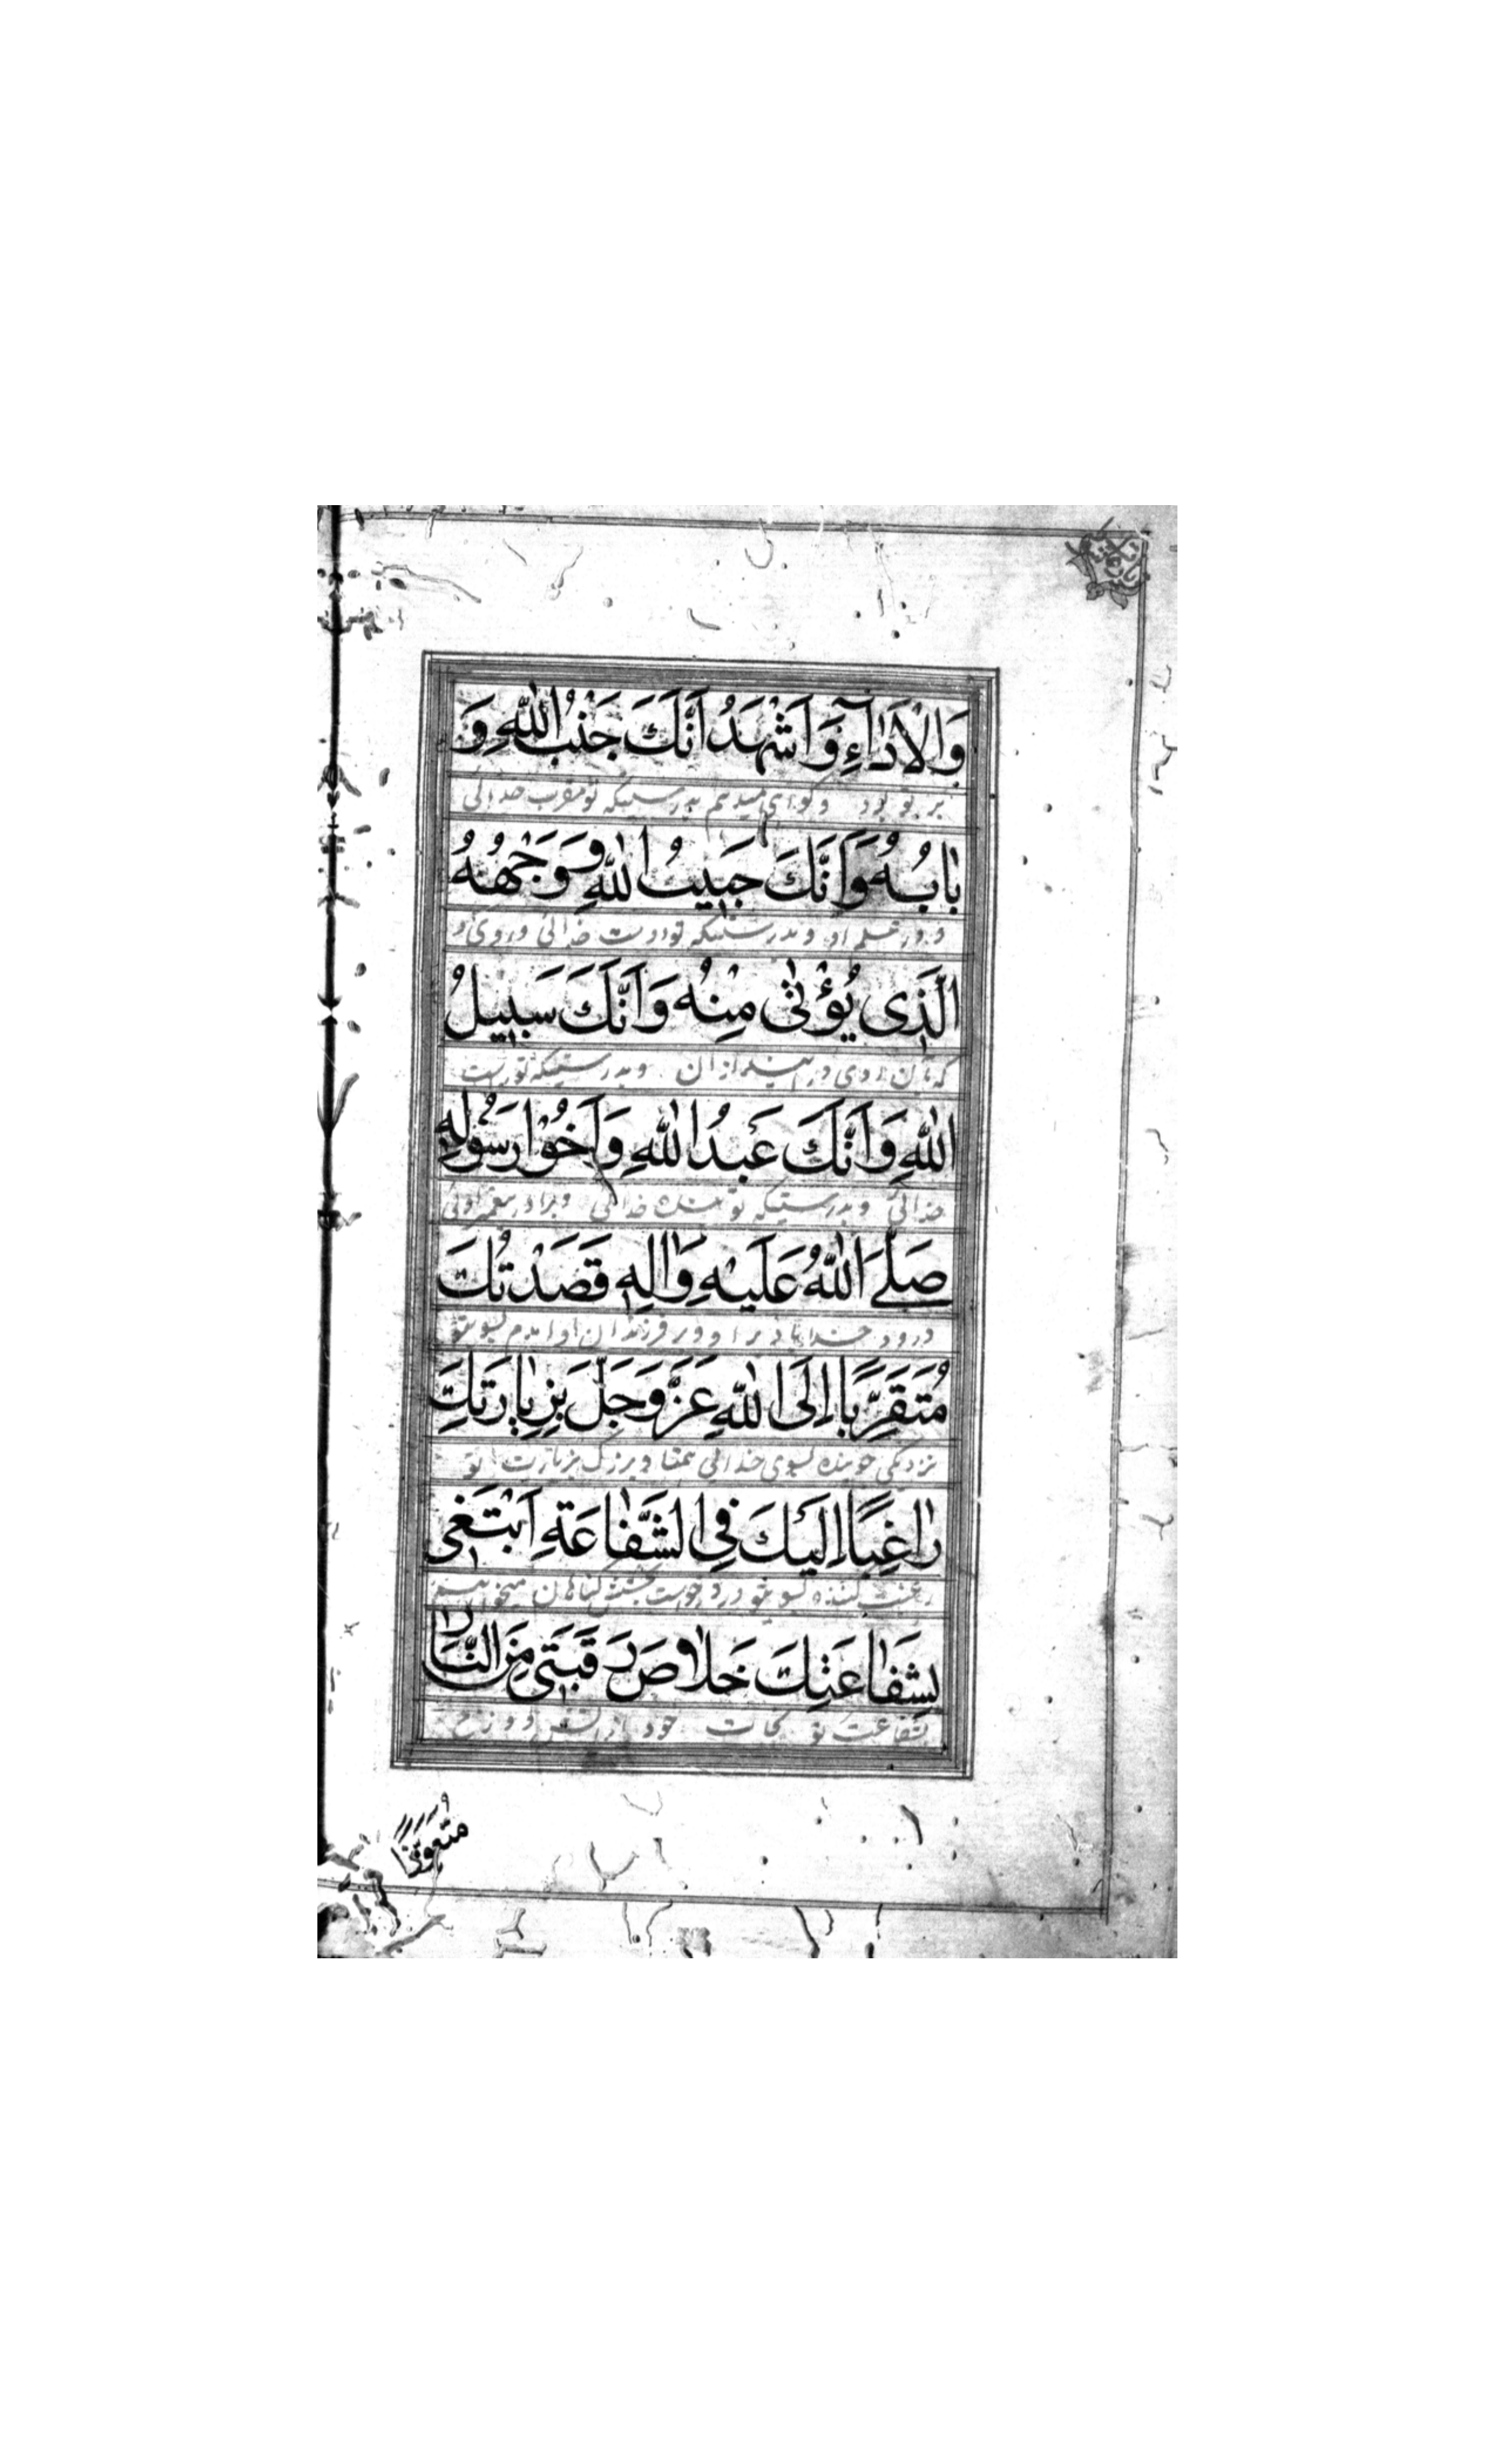 وَالْاَدٰۤاءِ وَاَشْهَدُ اَنَّكَ جَنْبُ اللّٰهِ وَ
بر تو بود وگواهی میدهم بدرستیکه تو مقرب خدائی
بٰابُهُ وَاَنَّكَ حَبيبُ اللّٰهِ وَوَجْهُهُ
و در علم او وبدرستیکه تو دوست خدائی وروی او
الَّذِی يُؤْتٰى مِنْهُ وَاَنَّكَ سَبيلُ
که بآن روی در ازان وبدرستیکه تو
اللّٰهِ وَاَنَّكَ عَبْدُ اللّٰهِ وَاَخُوْا رَسُوْلِهِ
خدائی وبدرستیکه تو بنده خدائی وبرادر پیغمبر اوئی
صَلَّى اللّٰهُ عَلَيْهِ وَاٰلِهِ قَصَدْتُكَ
درود خدا باد بر او وبر فرزندان او آمدم بسوی تو
مُتَقَرِّبًا اِلَى اللّٰهِ عَزَّ وَجَلَّ بِزِيٰارَتِكَ
نزدیکی جوینده بسوی خدائی وبزرگ بزیارت تو
رٰاغِبًا اِلَيْكَ فِی الشَّفٰاعَةِ اَبْتَغی
رغبت کننده بسوی تو در درخواست بخشش گناهان میخواهم
بِشَفٰاعَتِكَ خَلٰاصَ رَقَبَتی مِنَ النّٰارِ
بشفاعت تو نجات خود از آتش دوزخ
مُتَعَوِّذًا